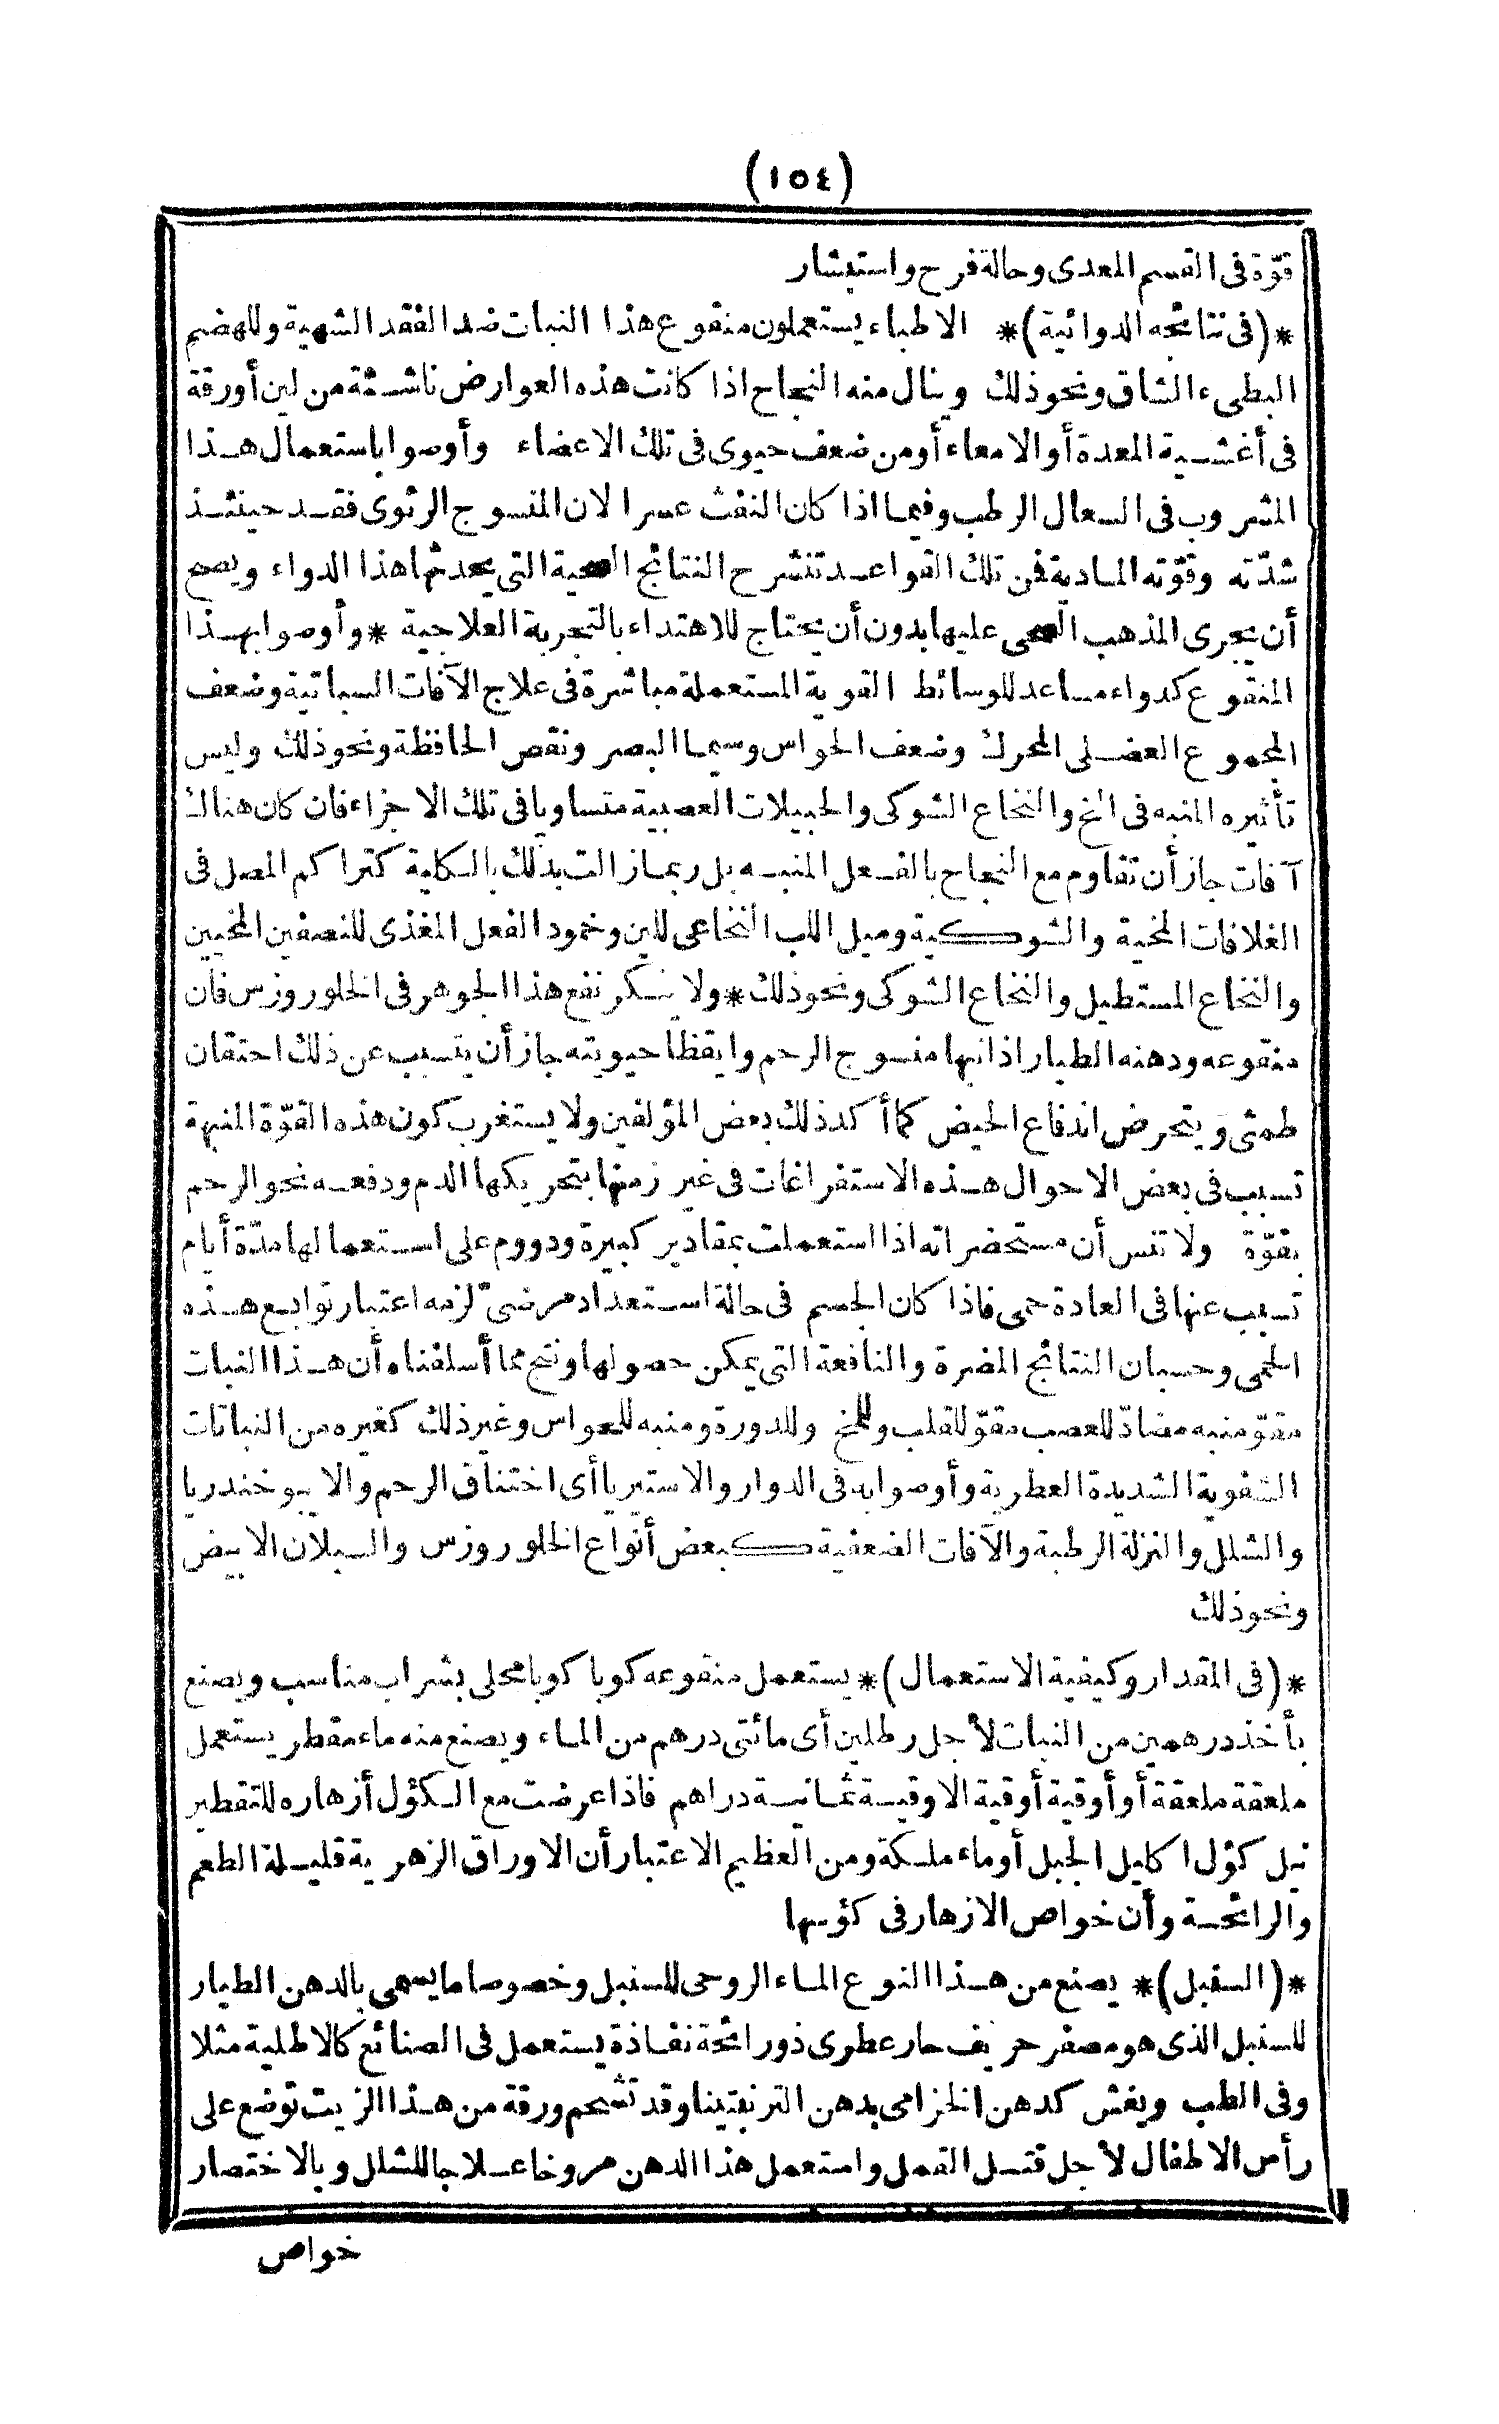 (١٥٤)
قوّة فى القسم المعدى وحالة فرح واستبشار
*(فى نتائجه الدوائية)* الاطباء يستعملون منقوع هذا النبات ضد الفقد الشهية وللهضم
البطىء الشاق ونحو ذلك وينال منه النجاح اذا كانت هذه العوارض ناشئة من لين أو رقة
فى أغشية المعدة أو الامعاء أو من ضعف حيوى فى تلك الاعضاء وأوصوا باستعمال هذا
المشروب فى السعال الرطب وفيما اذا كان النفث عسرا لان المنسوج الرئوى فقد حينئذ
شدّته وقوّته المادية فن تلك القواعد تنشرح النتائج الصحية التى يحدثها هذا الدواء ويصح
أن يجرى المذهب الصحى عليها بدون أن يحتاج للاهتداء بالتجربة العلاجية * وأوصوا بهذا
المنقوع كدواء مساعد للوسائط القوية المستعملة مباشرة فى علاج الآفات السباتية وضعف
المجموع العضلى المحرك وضعف الحواس وسيما البصر ونقص الحافظة ونحو ذلك وليس
تأثيره المنبه فى المخ والنخاع الشوكى والحبيلات العصبية متساويا فى تلك الاجزاء فان كان هناك
آفات جاز أن تقاوم مع النجاح بالفعل المنبه بل ربما زالت بذلك بالكلية كتراكم المصل فى
الغلافات المخية والشوكية وميل اللب النخاعى للين وخمود الفعل المغذى للنصفين المخيين
والنخاع المستطيل والنخاع الشوكى ونحو ذلك * ولا ينكر نفع هذا الجوهر فى الخلوروزس فان
منقوعه ودهنه الطيار اذا نبها منسوج الرحم وايقظا حيويته جاز أن يتسبب عن ذلك احتقان
طمثى ويتحرض اندفاع الحيض كما أكد ذلك بعض المؤلفين ولا يستغرب كون هذه القوّة المنبهة
تسبب فى بعض الاحوال هذه الاستفراغات فى غير زمنها بتحريكها الدم ودفعه نحو الرحم
بقوّة ولا تنس أن مستحضراته اذا استعملت بمقادير كبيرة ودووم على استعمالها مدّة أيام
تسبب عنها فى العادة حمى فاذا كان الجسم فى حالة استعداد مرضىّ لزمه اعتبار توابع هذه
الحمى وحسبان النتائج المضرة والنافعة التى يمكن حصولها ونتج مما أسلفناه أن هذا النبات
مقوّ منبه مضادّ للعصب مقوّ للقلب وللمخ وللدورة ومنبه للحواس وغير ذلك كغيره من النباتات
الشفوية الشديدة العطرية وأوصوا به فى الدوار والاستيريا أى اختناق الرحم والايبوخندريا
والشلل والنزلة الرطبة والآفات الضعفية كبعض أنواع الخلوروزس والسيلان الابيض
ونحو ذلك
*(فى المقدار وكيفية الاستعمال)* يستعمل منقوعه كوبا كوبا محلى بشراب مناسب ويصنع
بأخذ درهمين من النبات لأجل رطلين أى مائتى درهم من الماء ويصنع منه ماء مقطر يستعمل
ملعقة ملعقة أو أوقية أوقية الاوقية ثمانية دراهم فاذا عرضت مع الكؤل أزهاره للتقطير
نيل كؤل اكليل الجبل أو ماء ملكة ومن العظيم الاعتبار أن الاوراق الزهرية قليلة الطعم
والرائحة وأن خواص الازهار فى كؤسها
*(السنبل)* يصنع من هذا النوع الماء الروحى للسنبل وخصوصا ما يسمى بالدهن الطيار
للسنبل الذى هو مصفر حريف حار عطرى ذو رائحة نفاذة يستعمل فى الصنائع كالاطلية مثلا
وفى الطب ويغش كدهن الخزامى بدهن التربنتينا وقد تشحم ورقة من هذا الزيت توضع على
رأس الاطفال لأجل قتل القمل واستعمل هذا الدهن مروخا علاجا للشلل وبالاختصار
خواص